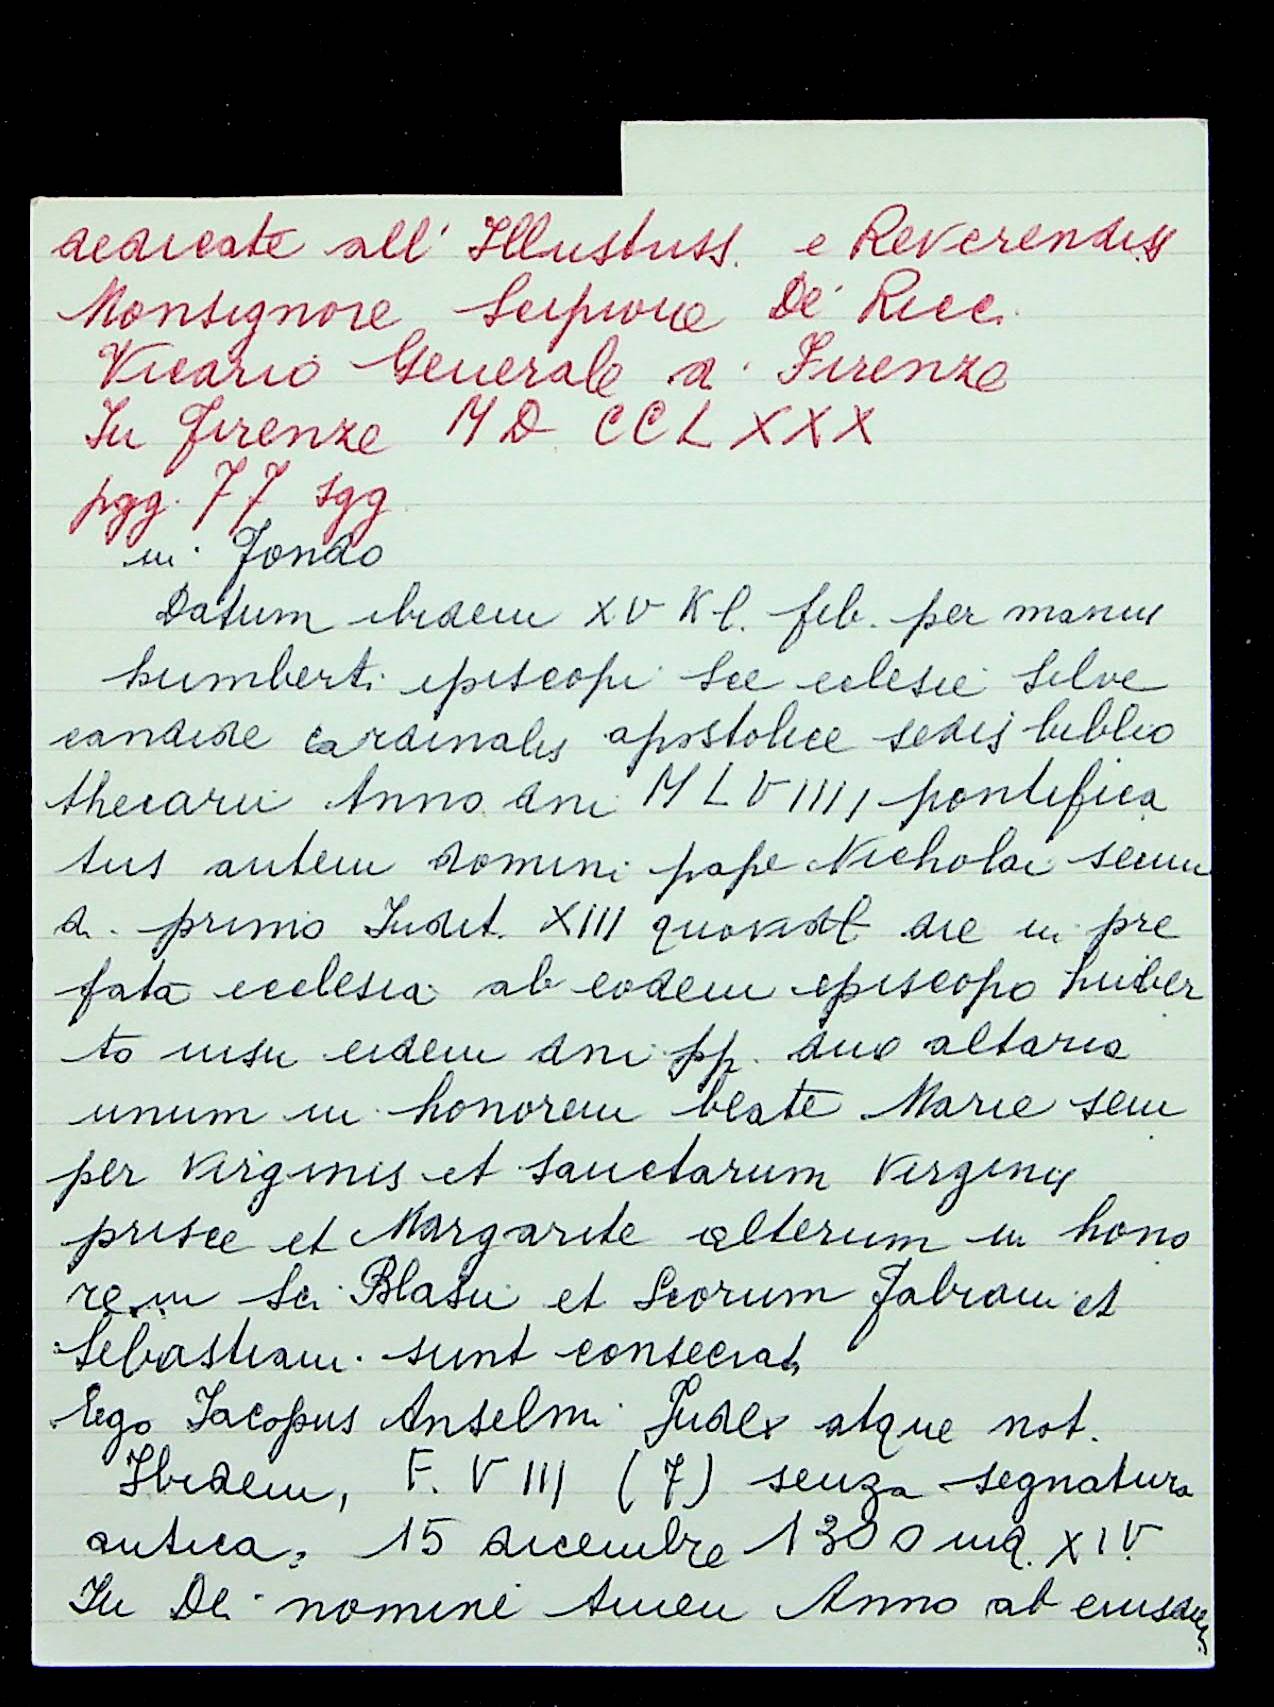 dedicate all' Illustriss. e Reverendiss
Monsignore Scipione De' Ricci
Vicario Generale di Firenze
In Firenze MD CCLXXX
pgg. 77 sgg
in fondo
Datum ibidem XV Kl. feb. per manus
humberti episcopi Sce eclesie Silve
candide cardinalis apostolice sedis biblio
thecarii Anno dni MLVIIII, pontifica
tus autem domini pape Nicholai secun
di primo Indict. XIII die in pre
fata ecclesia ab eodem episcopo huber
to iusu eidem dni pp. duo altaria
unum in honorem beate Marie sem
per Virginis et sanctarum Virginis
prisce et Margarite alterum in hono
rem Sci Blasii et Scorum Fabiani et
Sebastiani sunt consecrat
Ego Jacopus Anselmi Judex atque not.
Ibidem, F. VIII (7) senza segnatura
antica, 15 dicembre 1300 ind. XIV
In Dei nomine Amen Anno ab eiusdem